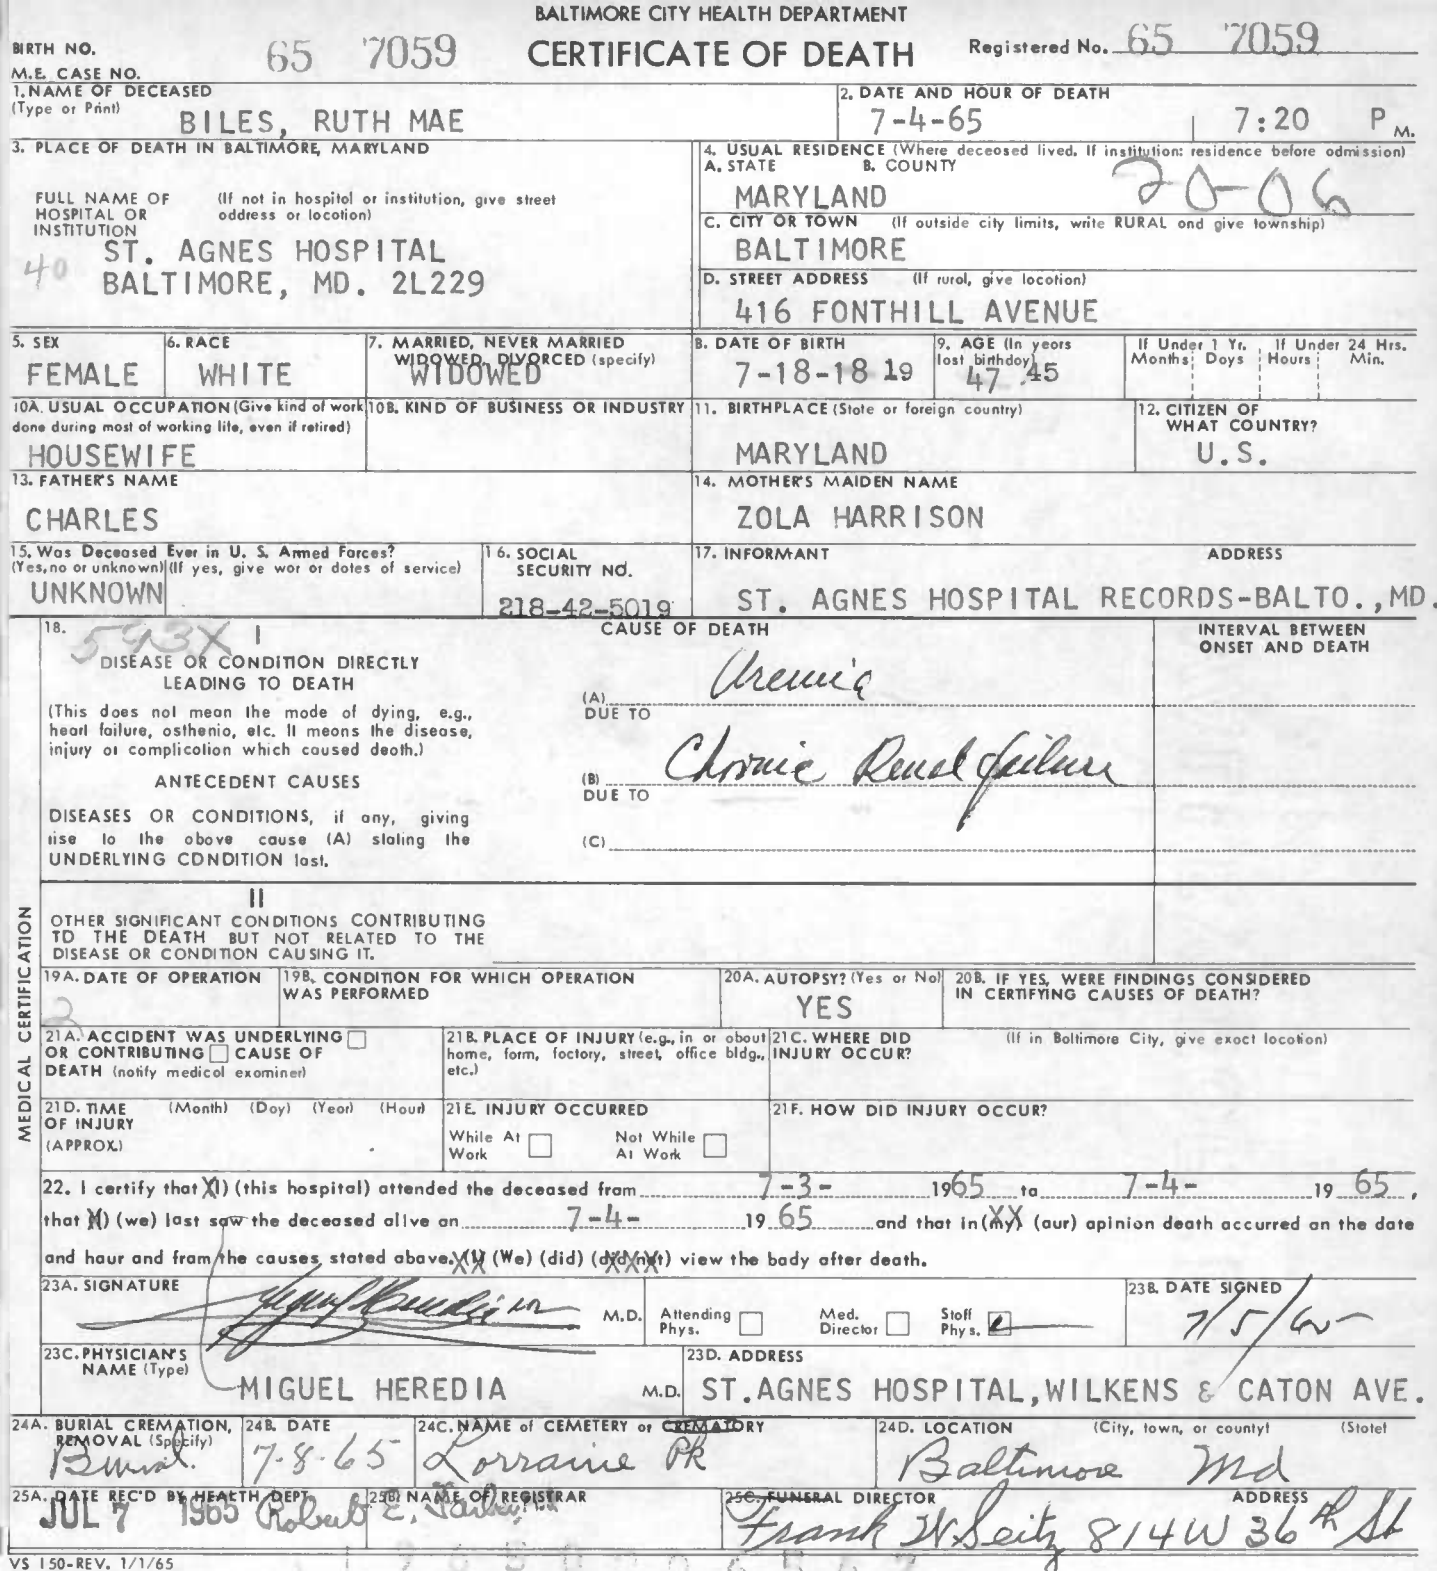 BALTIMORE CITY HEALTH DEPARTMENT
BIRTH NO. 65 7059 CERTIFICATE OF DEATH Registered No. 65 7059
M.E. CASE NO.
1. NAME OF DECEASED
(Type or Print) BILES, RUTH MAE
2. DATE AND HOUR OF DEATH
7-4-65 7:20 P M.
3. PLACE OF DEATH IN BALTIMORE, MARYLAND
FULL NAME OF HOSPITAL OR INSTITUTION (If not in hospital or institution, give street address or location)
40 ST. AGNES HOSPITAL
BALTIMORE, MD. 2L229
4. USUAL RESIDENCE (Where deceased lived. If institution: residence before admission)
A. STATE B. COUNTY
MARYLAND 20-06
C. CITY OR TOWN (If outside city limits, write RURAL and give township)
BALTIMORE
D. STREET ADDRESS (If rural, give location)
416 FONTHILL AVENUE
5. SEX
FEMALE
6. RACE
WHITE
7. MARRIED, NEVER MARRIED
WIDOWED, DIVORCED (specify)
WIDOWED
8. DATE OF BIRTH
7-18-18 19
9. AGE (In years last birthday)
47 45
If Under 1 Yr. Months Days
If Under 24 Hrs. Hours Min.
10A. USUAL OCCUPATION (Give kind of work done during most of working life, even if retired)
HOUSEWIFE
10B. KIND OF BUSINESS OR INDUSTRY
11. BIRTHPLACE (State or foreign country)
MARYLAND
12. CITIZEN OF WHAT COUNTRY?
U.S.
13. FATHER'S NAME
CHARLES
14. MOTHER'S MAIDEN NAME
ZOLA HARRISON
15. Was Deceased Ever in U. S. Armed Forces?
(Yes, no or unknown) (If yes, give war or dates of service)
UNKNOWN
16. SOCIAL SECURITY NO.
218-42-5019
17. INFORMANT ADDRESS
ST. AGNES HOSPITAL RECORDS-BALTO.,MD.
MEDICAL CERTIFICATION
18. 593X I
CAUSE OF DEATH
INTERVAL BETWEEN ONSET AND DEATH
DISEASE OR CONDITION DIRECTLY
LEADING TO DEATH
(This does not mean the mode of dying, e.g.,
heart failure, asthenia, etc. It means the disease,
injury or complication which caused death.)
(A) Uremia
DUE TO
ANTECEDENT CAUSES
(B) Chronic Renal failure
DUE TO
DISEASES OR CONDITIONS, if any, giving
rise to the above cause (A) stating the
UNDERLYING CONDITION last.
(C)
II
OTHER SIGNIFICANT CONDITIONS CONTRIBUTING
TO THE DEATH BUT NOT RELATED TO THE
DISEASE OR CONDITION CAUSING IT.
19A. DATE OF OPERATION
2
19B. CONDITION FOR WHICH OPERATION WAS PERFORMED
20A. AUTOPSY? (Yes or No)
YES
20B. IF YES, WERE FINDINGS CONSIDERED IN CERTIFYING CAUSES OF DEATH?
21A. ACCIDENT WAS UNDERLYING
OR CONTRIBUTING CAUSE OF
DEATH (notify medical examiner)
21B. PLACE OF INJURY (e.g., in or about home, farm, factory, street, office bldg., etc.)
21C. WHERE DID INJURY OCCUR? (If in Baltimore City, give exact location)
21D. TIME OF INJURY (APPROX.) (Month) (Day) (Year) (Hour)
21E. INJURY OCCURRED
While At Work Not While At Work
21F. HOW DID INJURY OCCUR?
22. I certify that (I) (this hospital) attended the deceased from 7-3- 1965 to 7-4- 19 65,
that (I) (we) last saw the deceased alive on 7-4- 19 65 and that in (my) (our) opinion death occurred on the date
and hour and from the causes stated above. (I) (We) (did) (did not) view the body after death.
23A. SIGNATURE
M.D. Attending Phys. Med. Director Staff Phys.
23B. DATE SIGNED
7/5/65
23C. PHYSICIAN'S NAME (Type)
MIGUEL HEREDIA M.D.
23D. ADDRESS
ST.AGNES HOSPITAL,WILKENS & CATON AVE.
24A. BURIAL CREMATION, REMOVAL (Specify)
Burial.
24B. DATE
7-8-65
24C. NAME of CEMETERY or CREMATORY
Lorraine Pk
24D. LOCATION (City, town, or county) (State)
Baltimore Md
25A. DATE REC'D BY HEALTH DEPT.
JUL 7 1965
25B. NAME OF REGISTRAR
Robert E.
25C. FUNERAL DIRECTOR ADDRESS
Frank W Seitz 814 W 36th St
VS 150-REV. 1/1/65